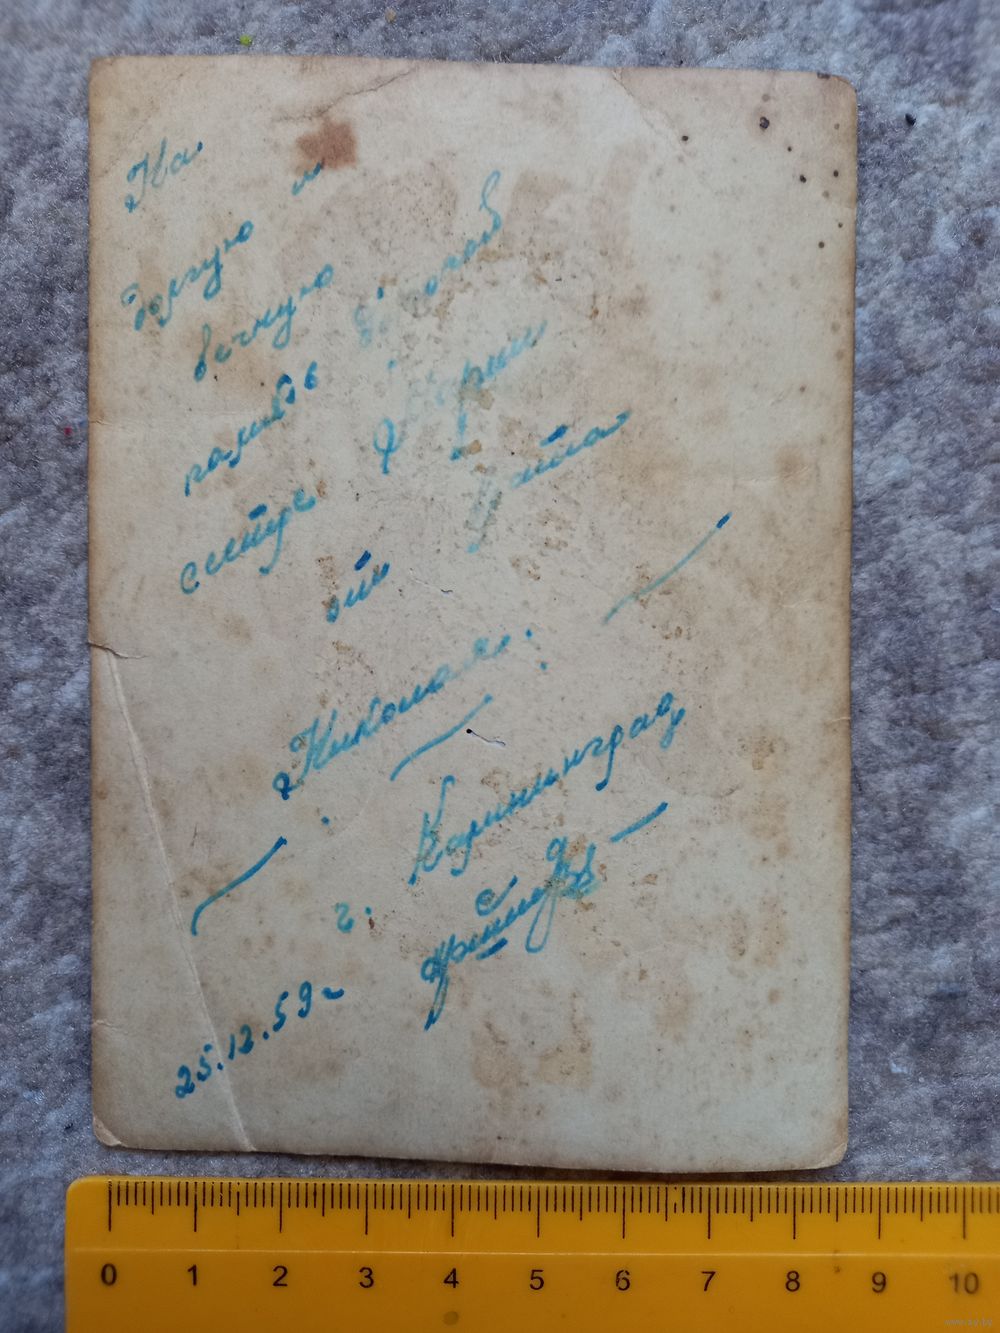 На
долгую и
вечную
память дорогой
сестре Марии
от брата
Николая.
г. Калининград
25.12.59 г
0 1 2 3 4 5 6 7 8 9 10